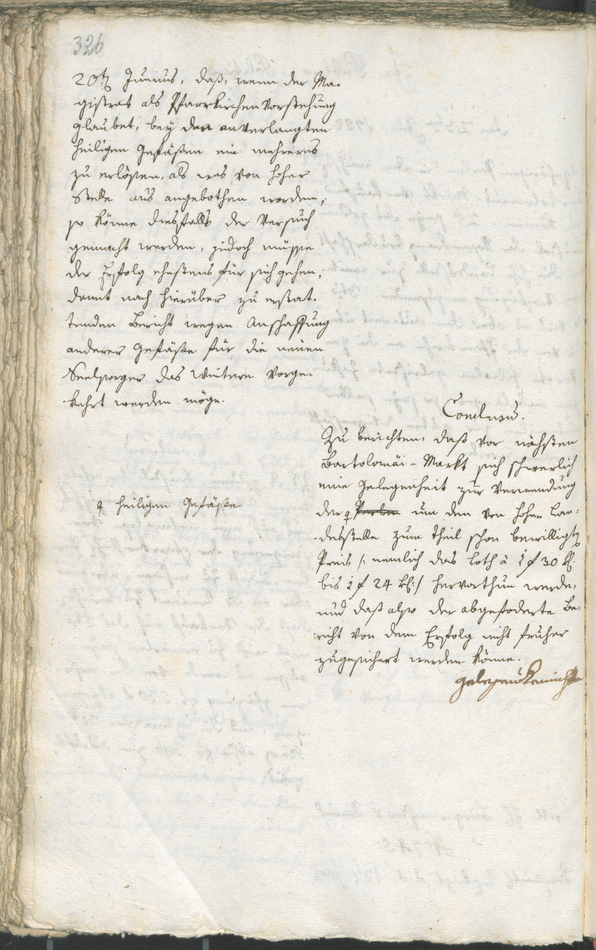 326
20t Junius, daß, wenn der Ma-
gistrat als Pfarrkirchen Vorstehung
glaubet, bey den anverlangten
heiligen Gefäßen ein mehreres
zu erlösen, als was von hoher
Stelle aus angebothen worden,
so könne diesfalls der Versuch
gemacht werden, jedoch müsse
der Erfolg ehestens für sich gehen,
damit nach hierüber zu erstat-
tenden Bericht wegen Anschaffung
anderer Gefäße für die neuen
Seelsorger das Weitere vorge-
kehrt werden möge.
Conclusum.
Zu berichten, daß vor nächsten
Bartolomäi-Markt sich schwerlich
eine Gelegenheit zur Verwendung
der um den von hohen Lan-
desstelle zum theil schon bewilligt
Preis /: nemlich das Loth à 1 f 30 k.
bis 1 f 24 k :/ hervorthun werde,
und daß also der abgeforderte Be-
richt von dem Erfolg nicht früher
zugesichert werden könne.
heiligen Gefäße